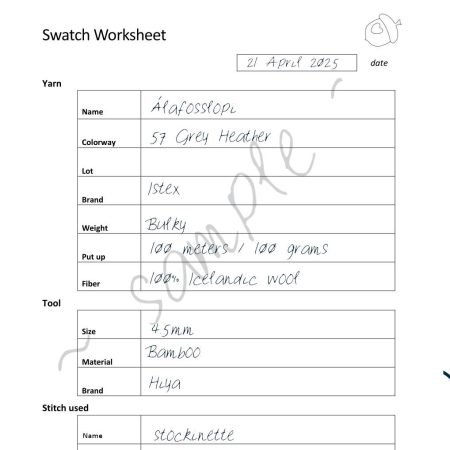 Swatch Worksheet
21 April 2025 date
Yarn
Name Álafosslopi
Colorway 57 Grey Heather
Lot
Brand Istex
Weight Bulky
Put up 100 meters / 100 grams
Fiber 100% Icelandic wool
Tool
Size 4.5mm
Material Bamboo
Brand Hiya
Stitch used
Name stockinette
~ Sample ~